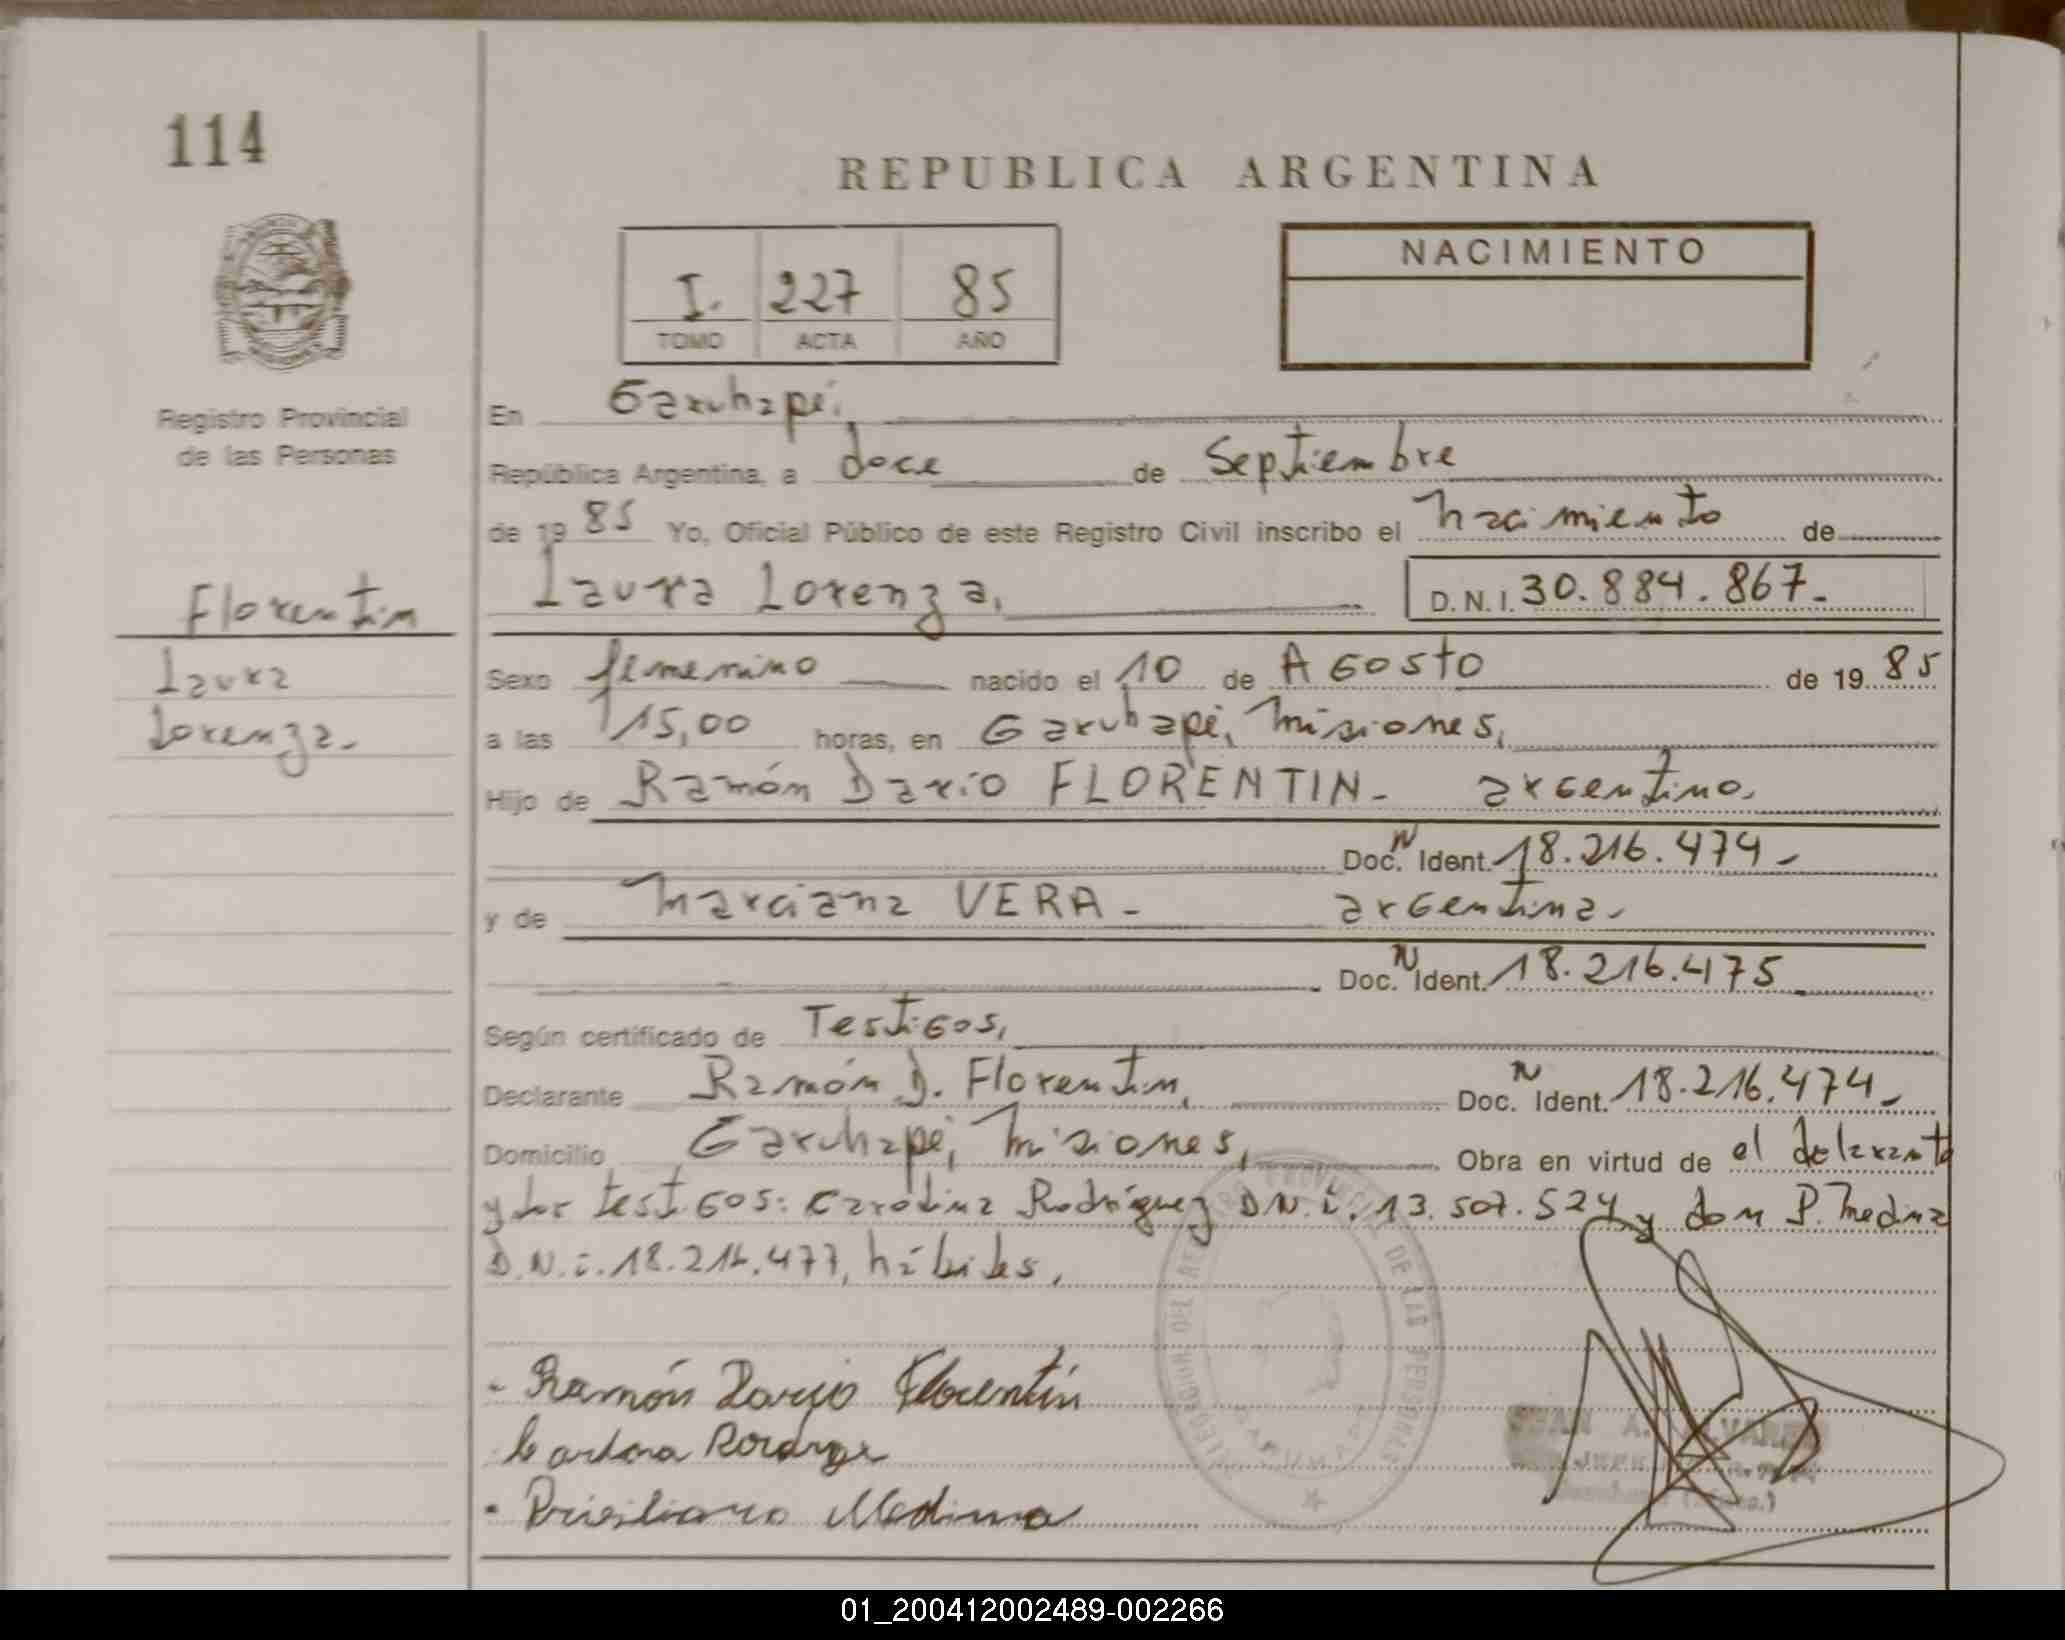 114
REPUBLICA ARGENTINA
NACIMIENTO
I. 227 85
TOMO ACTA AÑO
Registro Provincial
de las Personas
En Garuhapé,
República Argentina, a doce de Septiembre
de 1985 Yo, Oficial Público de este Registro Civil inscribo el nacimiento de
Laura Lorenza, D.N.I. 30.884.867-
Florentin
Laura
Lorenza.
Sexo femenino nacido el 10 de AGosto de 1985
a las 15,00 horas, en Garuhapé, Misiones,
Hijo de Ramón Darío FLORENTIN- arGentino,
Doc. N Ident. 18.216.474-
y de Marciana VERA- arGentina.
Doc. N Ident. 18.216.475
Según certificado de TestiGos,
Declarante Ramón D. Florentin, Doc. N Ident. 18.216.474-
Domicilio Garuhapé, Misiones, Obra en virtud de el
y los testiGos: Carolina Rodríguez D.N.i. 13.507.524 y don P. Medina
D.N.i. 18.216.477, hábiles,
DEL REGISTRO PROVINCIAL DE LAS PERSONAS
GARUHAPE
- Ramón Dario Florentín
- Prisiliano Medina
JUAN A. ALVAREZ
01_200412002489-002266